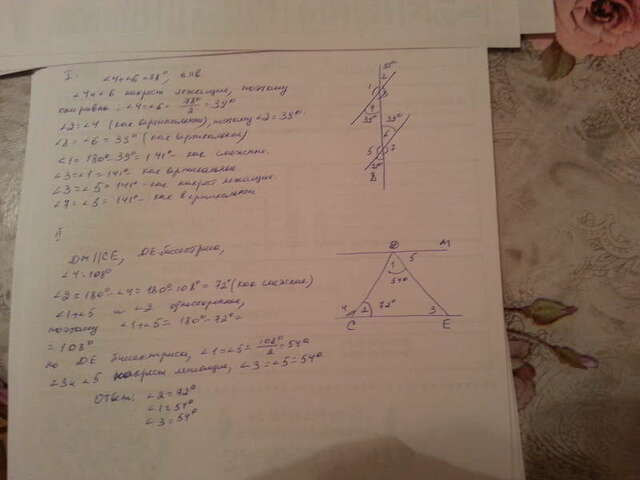 I. ∠4+∠6=78°, a∥b
∠4 и ∠6 накрест лежащие, поэтому
они равны: ∠4=∠6= 78°/2 = 39°
∠2=∠4 (как вертикальные), поэтому ∠2=39°.
∠8=∠6=39° (как вертикальные)
∠1=180°-39°=141° - как смежные.
∠3=∠1=141° как вертикальные
∠3=∠5=141° - как накрест лежащие.
∠7=∠5=141° - как вертикальные
DM∥CE, DE-биссектриса,
∠4=108°
∠2=180°-∠4=180°-108°=72° (как смежные)
∠1+∠5 и ∠2 односторонние,
поэтому ∠1+∠5=180°-72°=
=108°
но DE биссектриса, ∠1=∠5= 108°/2 =54°
∠3 и ∠5 накрест лежащие, ∠3=∠5=54°
Ответ: ∠2=72°
∠1=54°
∠3=54°
39°
2
1
3
4
39°
39°
6
5
7
8
D
M
1
5
54°
4
2
72°
3
C
E